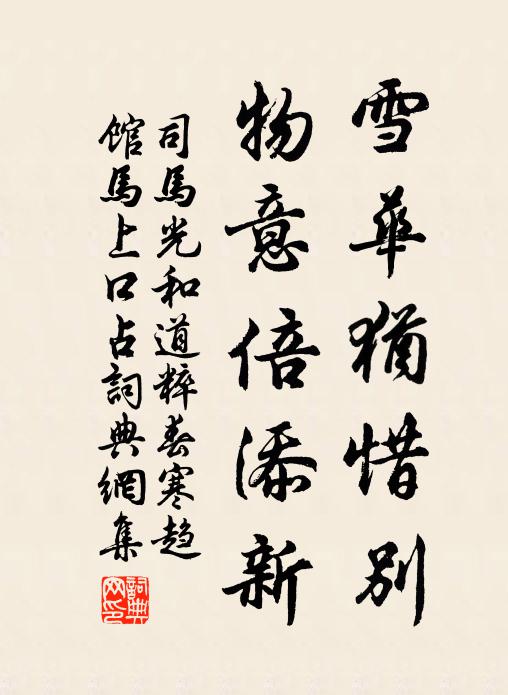 雪華猶惜別
物意倍添新
司馬光和道粹春寒趋
館馬上口占詞典網集
詞典
网印